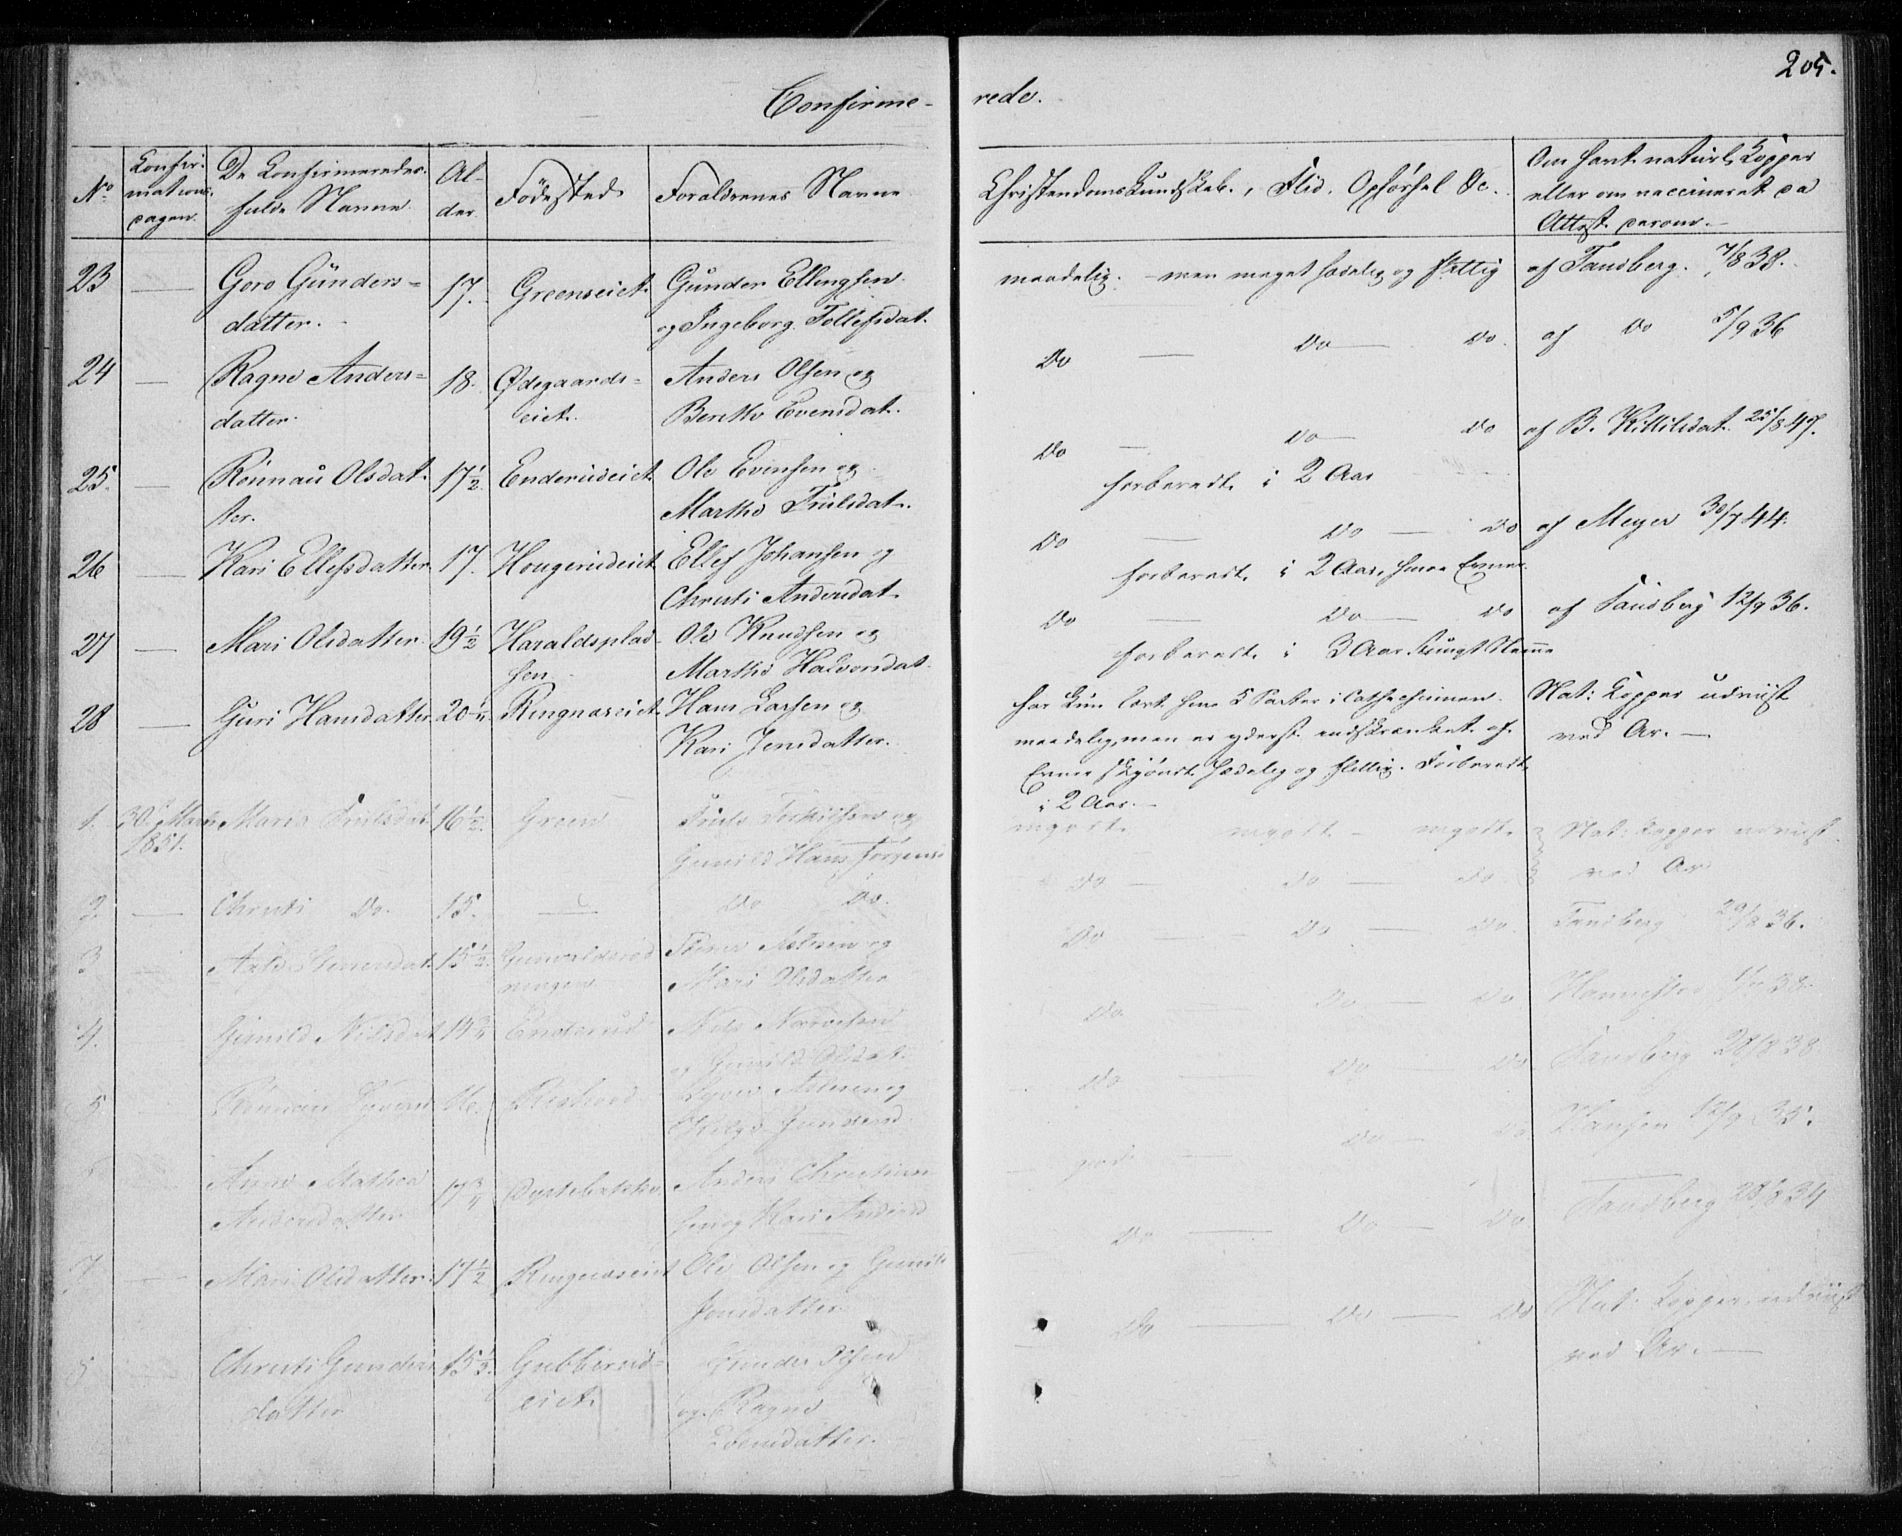 205.
Confirme-
rede.
No
Konfir-
mations-
dagen.
De Konfirmeredes
fulde Navne.
Al-
der.
Fødested
Forældrenes Navne
Christendomskundskab, Flid, Opførsel &c.
Om havt naturl. Kopper
eller om vaccineret og
Attest derom.
23
Goro Gunders-
datter.
17.
Greenseiet.
Gunder Ellingsen
og Ingeborg Tollefsdat.
maadelig. - men meget sædelig og flittig
af Tandberg. 7/8 38.
24
Ragne Anders-
datter.
18.
Ødegaards-
eiet.
Anders Olsen og
Berthe Evensdat.
Do Do Do
af Do 5/9 36
25.
Rönnau Olsdat-
ter.
17½.
Enderudeiet
Ole Evensen og
Marthe Trulsdat.
Do Do Do
forberedt i 2 Aar
af B. Kittilsdat. 25/8 47.
26
Kari Ellefsdatter.
17.
Hougerudeiet
Ellef Johansen og
Christi Andersdat.
Do Do Do
forberedt i 2 Aar, smaa Evner.
af Meyer 30/7 44.
27
Mari Olsdatter.
19½
Haraldsplad-
sen
Ole Knudsen og
Marthe Halvorsdat.
Do Do Do
forberedt i 3 Aar
af Tandberg 12/9 36.
28
Guri Hansdatter.
20¼
Ringnæseiet.
Hans Larsen og
Kari Jensdatter.
har kun lært sine 5 Parter i Cathechismen
maadelig, men er yderst indskrænket af
Evner skjönt sædelig og flittig. Forberedt
i 2 Aar.
Nat: Kopper udviist
ved Ar.
1.
30te Marts
1851.
Maria Trulsdat.
16½.
Green
Truls Torkilsen og
Gunild Hans Jörgens
mgodt. mgodt - mgodt.
Nat: Kopper udviist
ved Ar
2.
Christi Do.
15.
Do Do.
Do Do Do
3
Stenersdat.
15½.
Gunvaldsröd-
ningen
Stener Aslesen og
Mari Olsdatter
Do Do Do.
Tandberg 29/8 36.
4.
Gunild Nilsdat
14¾
Enderud
Nils
og Gunild Olsdat.
Do Do Do
38.
5
16.
Do Do Do
Tandberg 28/8 38.
Anne Mathea
Andersdatter
17¾
Anders Christian-
sen og Kari Andersd
god Do Do
Hansen 12/9 35.
7.
Mari Olsdatter.
17½
Ringnæseiet
Ole Olsen og Gunild
Jensdatter.
Do Do Do
Tandberg 28/8 34
8
Christi Gunders-
datter
15½.
Gubberud-
eiet.
Gunder Olsen
og Ragne
Evensdatter.
Do Do Do
Nat: Kopper udviist
ved Ar.